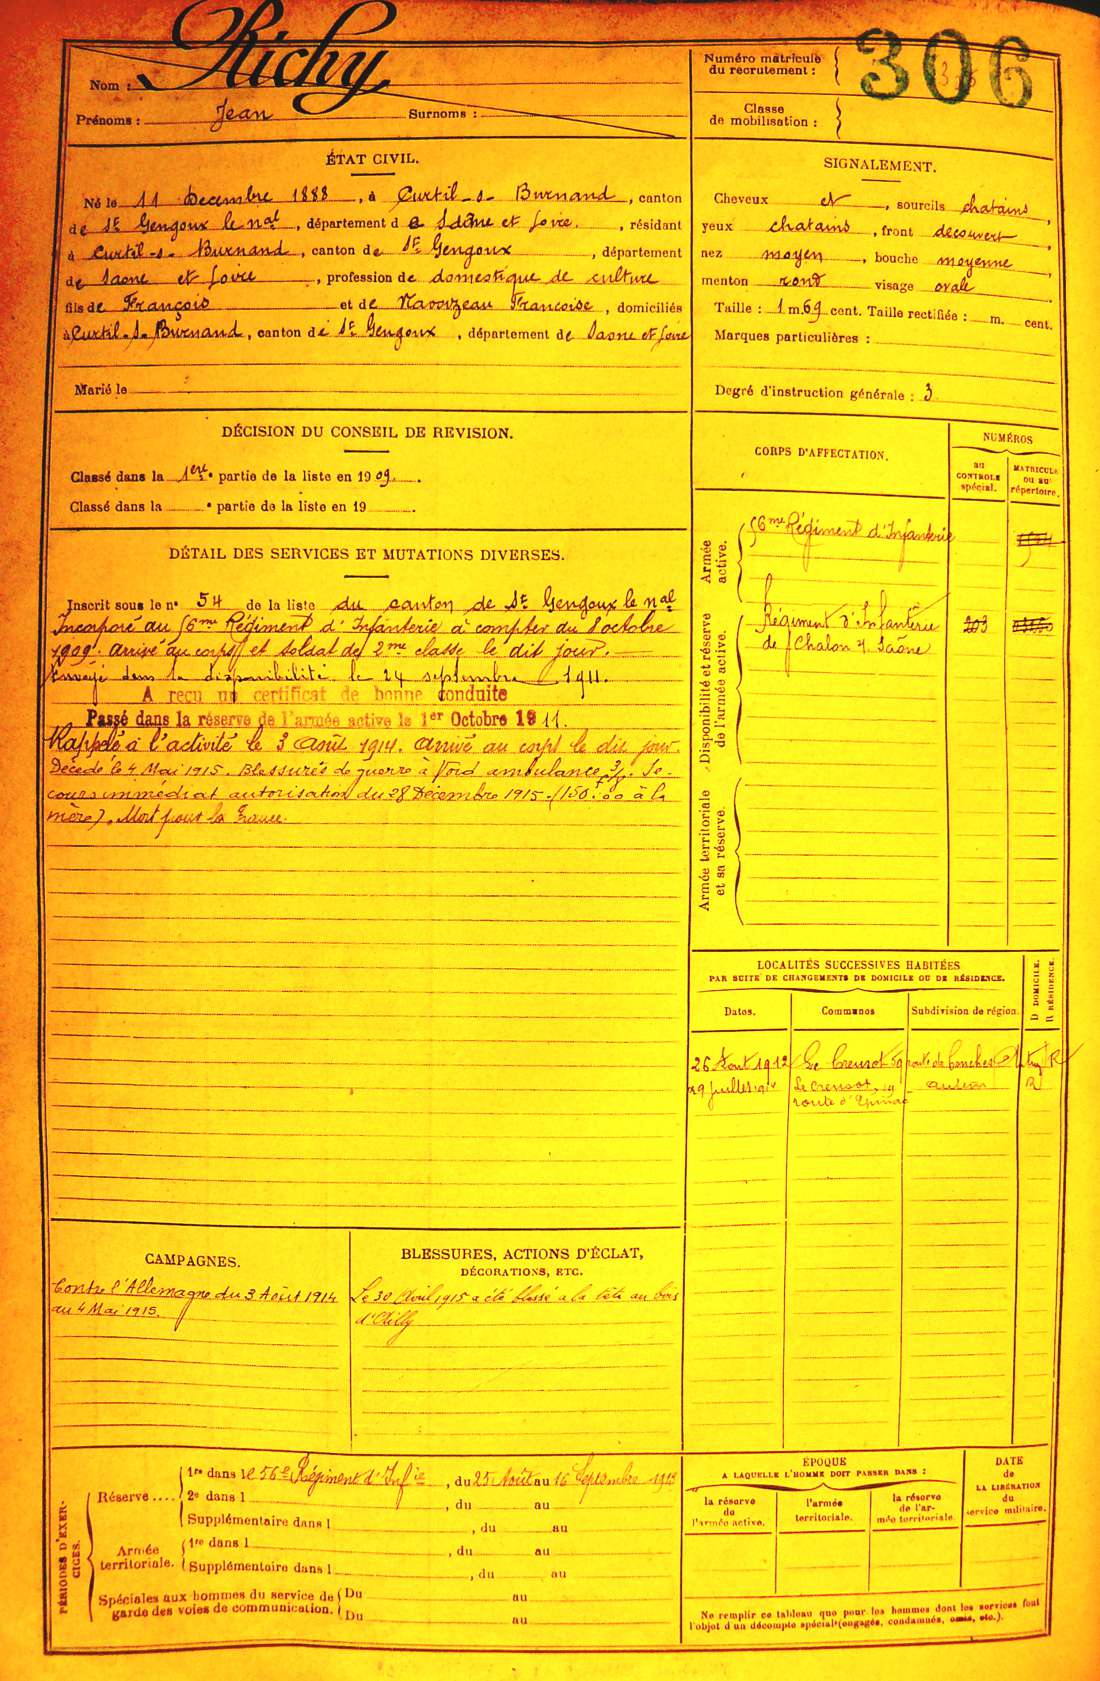 Nom : Richy
Prénoms : Jean Surnoms :
Numéro matricule
du recrutement : 306
Classe
de mobilisation :
ÉTAT CIVIL.
Né le 11 Decembre 1888, à Curtil-s- Burnand, canton
de St Gengoux le nal, département de Saône et Loire, résidant
à Curtil-s- Burnand, canton de St Gengoux, département
de Saone et Loire, profession de domestique de culture
fils de François et de Francoise, domiciliés
à Curtil-s- Burnand, canton de St Gengoux, département de Saone et Loire
Marié le
SIGNALEMENT.
Cheveux et, sourcils chatains,
yeux chatains, front découvert,
nez moyen, bouche moyenne,
menton rond visage ovale
Taille : 1 m. 69 cent. Taille rectifiée : m. cent.
Marques particulières :
Degré d'instruction générale : 3
DÉCISION DU CONSEIL DE REVISION.
Classé dans la 1ère partie de la liste en 1909.
Classé dans la e partie de la liste en 19 .
DÉTAIL DES SERVICES ET MUTATIONS DIVERSES.
Inscrit sous le n° 54 de la liste du canton de St Gengoux le nal
Incorporé au 56me Régiment d'Infanterie à compter du 8 octobre
1909. arrivé au corps et soldat de 2me classe le dit jour.
Envoyé dans la disponibilité le 24 septembre 1911.
A reçu un certificat de bonne conduite
Passé dans la réserve de l'armée active le 1er Octobre 1911.
Rappelé à l'activité le 3 Août 1914. Arrivé au corps le dit jour.
Décédé le 4 Mai 1915. Blessures de guerre à ambulance 3/. Se-
cours immédiat autorisation du 28 Décembre 1915. (150f00 à la
mère). Mort pour la France.
CORPS D'AFFECTATION.
NUMÉROS
au
CONTROLE
spécial.
MATRICULE
ou au
répertoire.
Armée
active.
56me Régiment d'Infanterie
Disponibilité et réserve
de l'armée active.
Régiment d'Infanterie
de Chalon s. Saône
Armée territoriale
et sa réserve.
LOCALITÉS SUCCESSIVES HABITÉES
PAR SUITE DE CHANGEMENTS DE DOMICILE OU DE RÉSIDENCE.
Dates. Communes Subdivision de région. D DOMICILE. R RÉSIDENCE.
26 Aout 1912 Le Creusot 59 route de Conches R
29 juillet Le Creusot, 19 autun R
route d'Epinac
CAMPAGNES.
Contre l'Allemagne du 3 Août 1914
au 4 Mai 1915.
BLESSURES, ACTIONS D'ÉCLAT,
DÉCORATIONS, ETC.
Le 30 Avril 1915 a été blessé a la tête au bois
d'Ailly
PÉRIODES D'EXERCICES.
Réserve .... 1re dans le 56e Régiment d'Infie, du 25 Août au 16 Septembre 1913
2e dans l , du au
Supplémentaire dans l , du au
Armée territoriale. 1re dans l , du au
Supplémentaire dans l , du au
Spéciales aux hommes du service de Du au
garde des voies de communication. Du au
ÉPOQUE
A LAQUELLE L'HOMME DOIT PASSER DANS :
la réserve
de
l'armée active.
l'armée
territoriale.
la réserve
de l'ar-
mée territoriale.
DATE
de
LA LIBÉRATION
du
service militaire.
Ne remplir ce tableau que pour les hommes dont les services font
l'objet d'un décompte spécial (engagés, condamnés, omis, etc.).